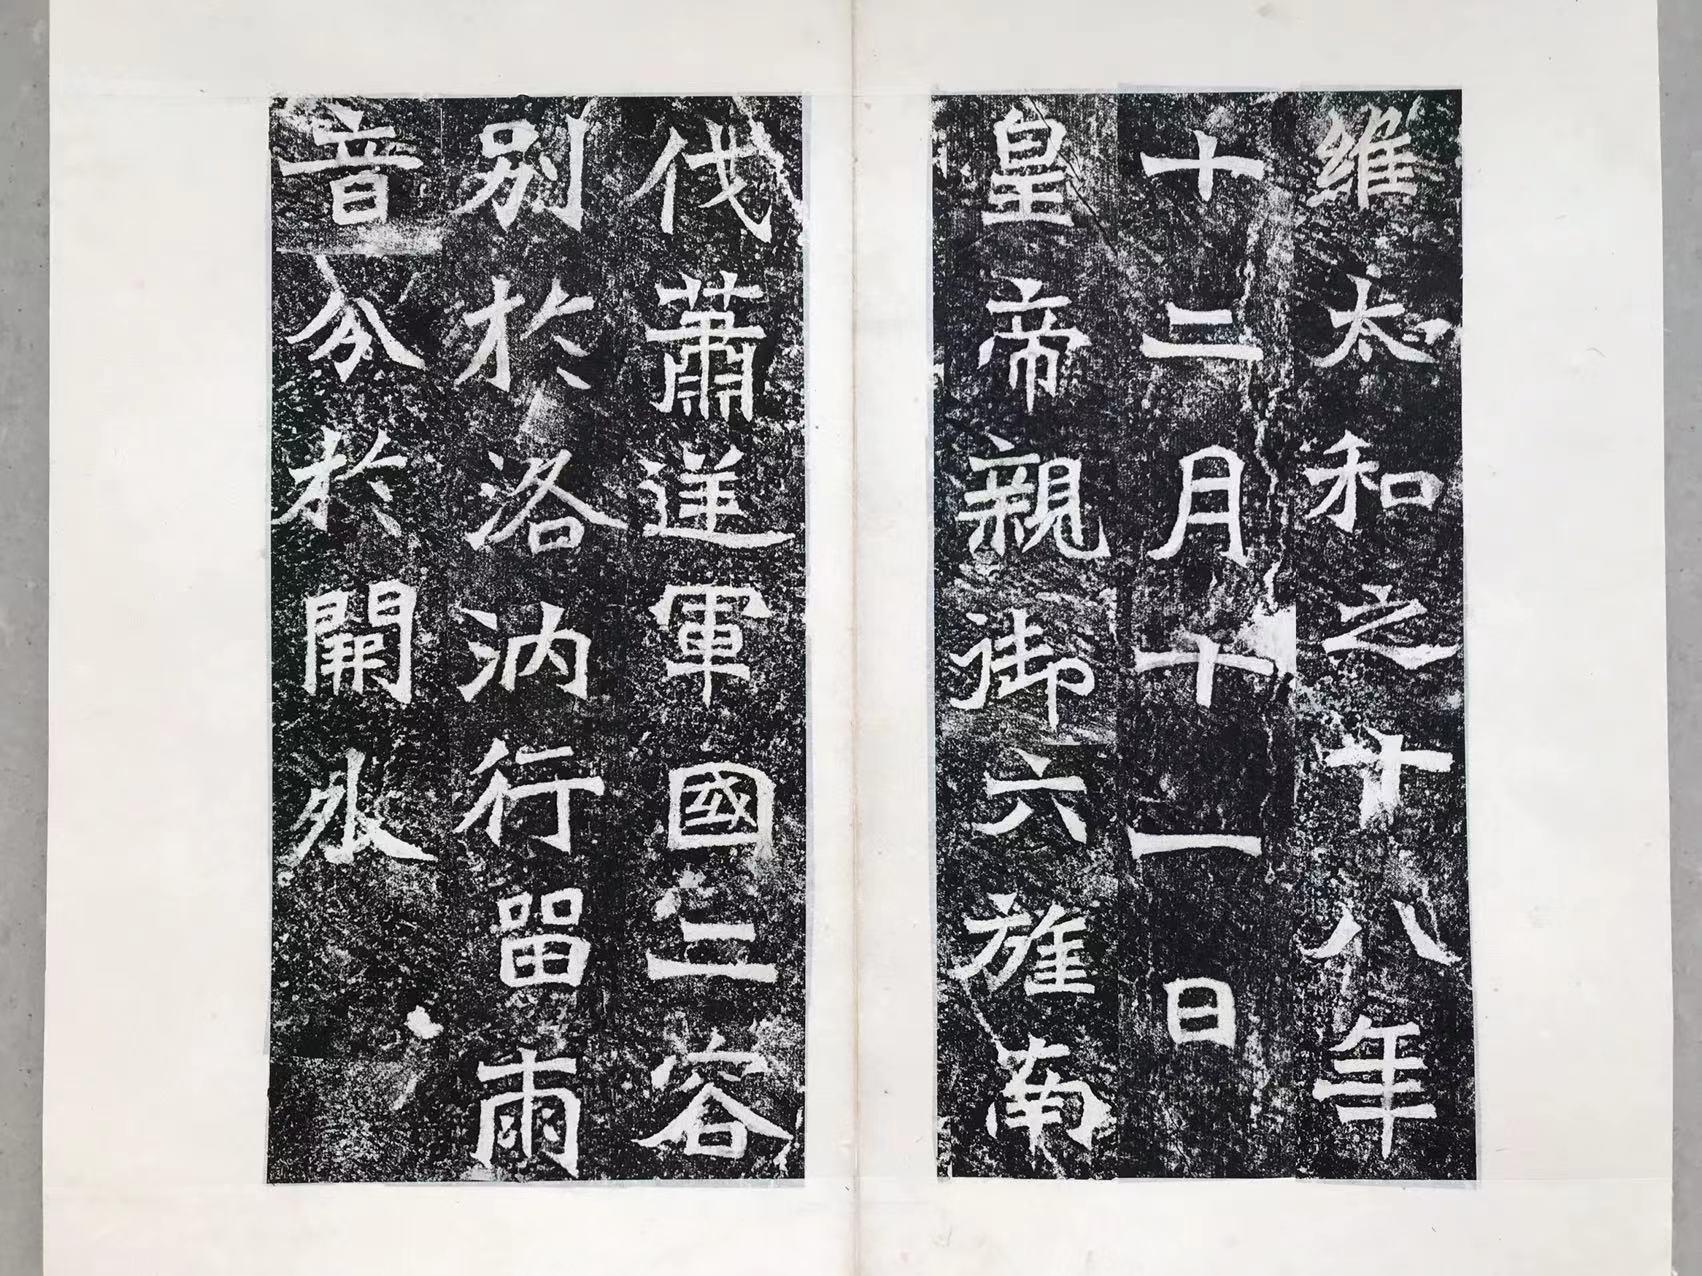 維太和之十八年
十二月十一日
皇帝親御六旌南
伐蕭逆軍國二容
別於洛汭行留兩
音分於開外